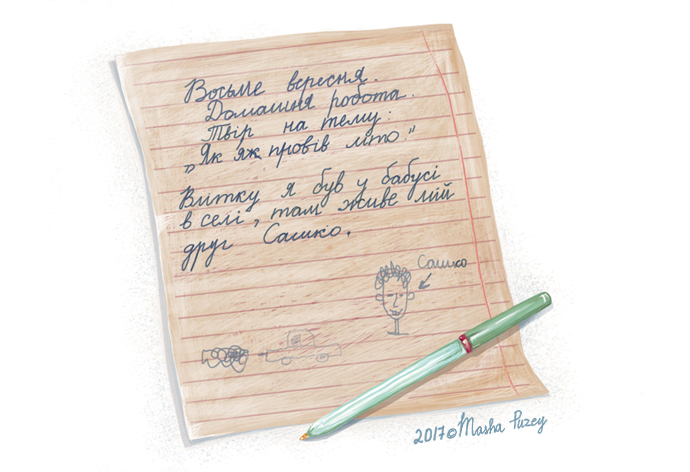 Восьме вересня.
Домашня робота.
Твір на тему:
„Як як провів літо"
Влітку я був у бабусі
в селі, там живе мій
друг Сашко.
Сашко
2017©Masha Puzey